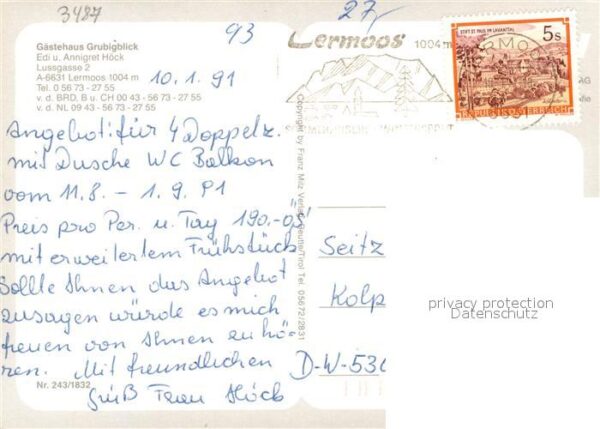 3487
27,-
93
Gästehaus Grubigblick
Edi u. Annigret Höck
Lussgasse 2
A-6631 Lermoos 1004 m
Tel. 0 56 73 - 27 55
v. dz. BRD, B u. CH 00 43 - 56 73 - 27 55
v. dz. NL 09 43 - 56 73 - 27 55
10.1.91
Lermoos 1004 m
STIFT ST. PAUL IM LAVANTTAL
5s
REPUBLIK ÖSTERREICH
Angebot: für 4 Doppelz.
mit Dusche WC Balkon
vom 11.8. - 1.9.91
Preis pro Per. u. Tag 190.-öS
mit erweitertem Frühstück
Sollte Ihnen das Angebot
zusagen würde es mich
freuen von Ihnen zu hö-
ren. Mit freundlichen
Gruß Frau Höck
Nr. 243/1832
Copyright by Franz Milz Verlag Reutte/Tirol Tel. 0 56 72/2831
Seitz
Kolp
D-W-530
privacy protection
Datenschutz